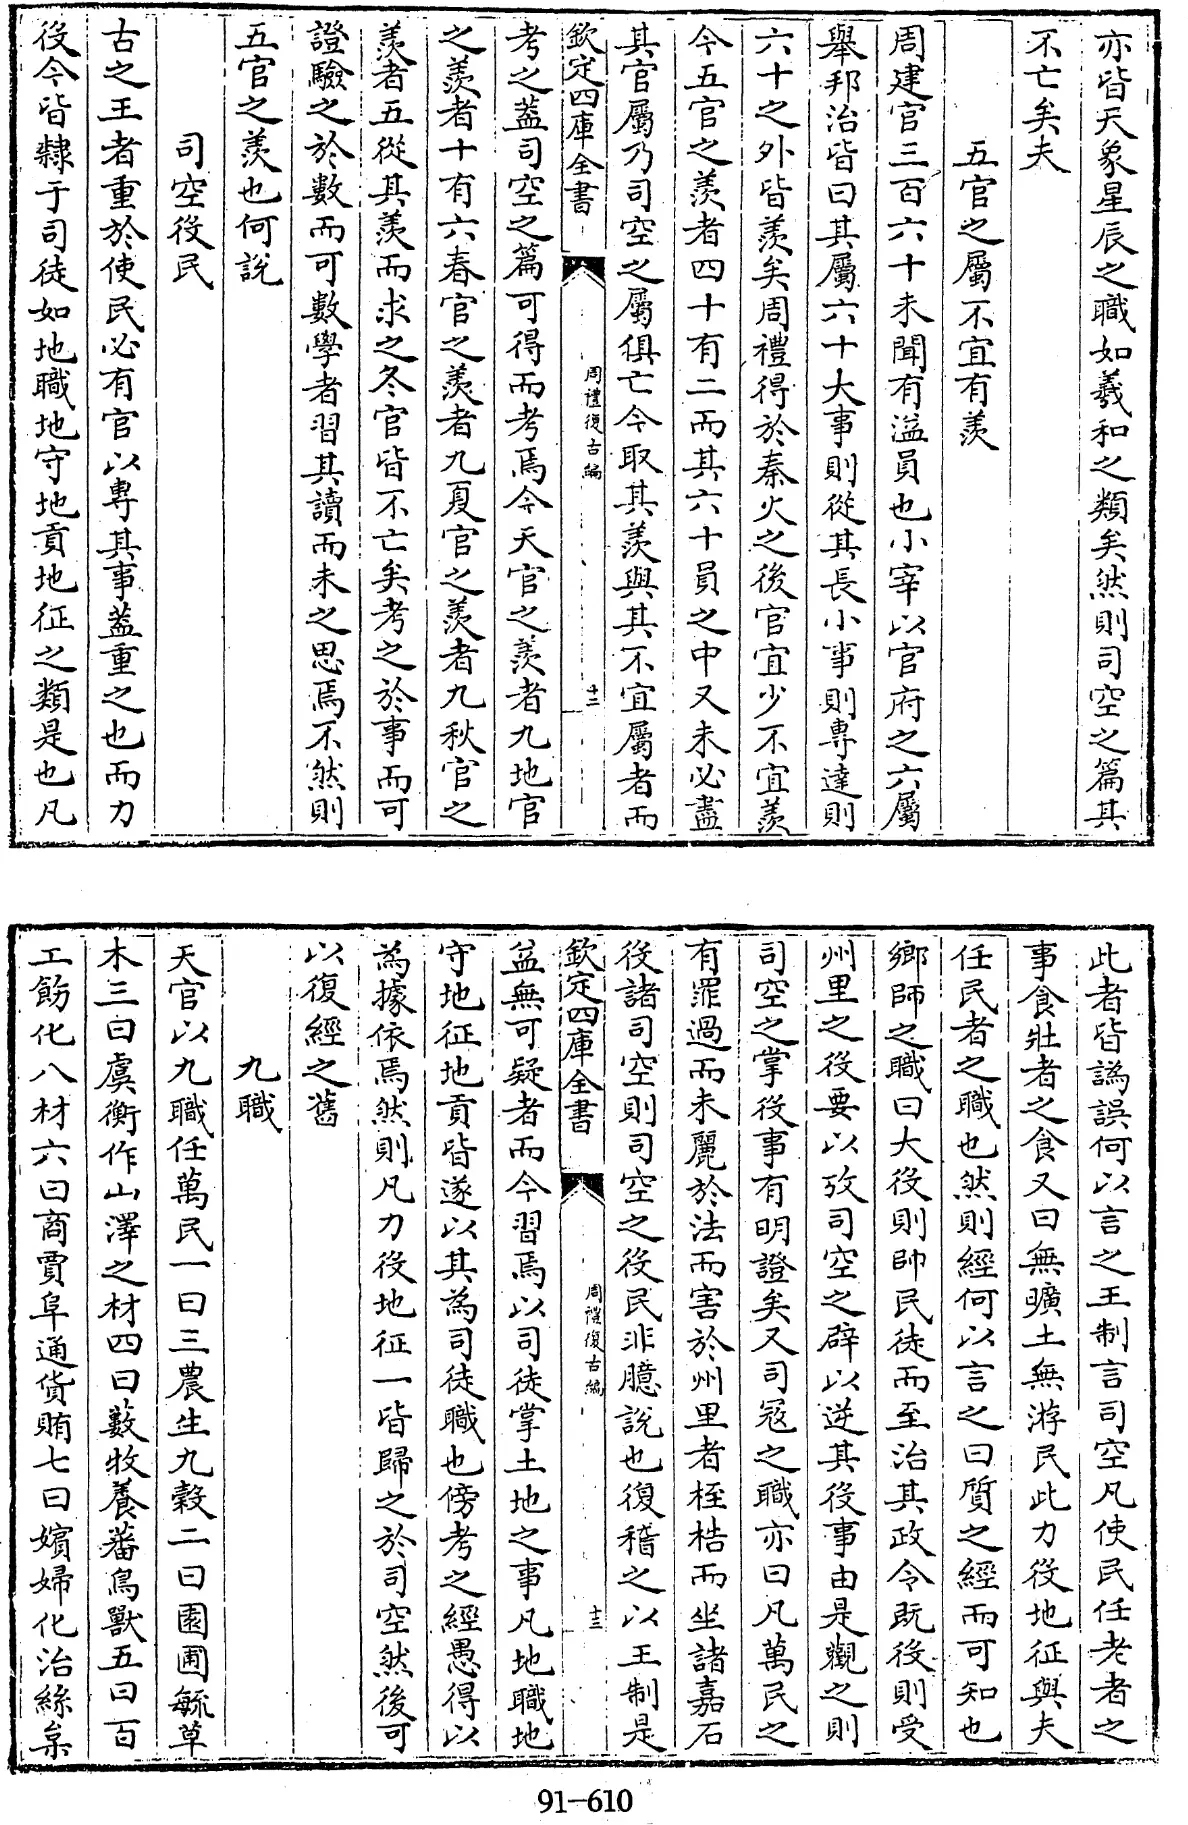 亦皆天象星辰之職如羲和之類矣然則司空之篇其
不亡矣夫
五官之屬不宜有羨
周建官三百六十未聞有溢員也小宰以官府之六屬
舉邦治皆曰其屬六十大事則從其長小事則專達則
六十之外皆羨矣周禮得於秦火之後官宜少不宜羨
今五官之羨者四十有二而其六十員之中又未必盡
其官屬乃司空之屬俱亡今取其羨與其不宜屬者而
欽定四庫全書
周禮復古編
十二
考之蓋司空之篇可得而考焉今天官之羨者九地官
之羨者十有六春官之羨者九夏官之羨者九秋官之
羨者五從其羨而求之冬官皆不亡矣考之於事而可
證驗之於數而可數學者習其讀而未之思焉不然則
五官之羨也何說
司空役民
古之王者重於使民必有官以專其事蓋重之也而力
役今皆隸于司徒如地職地守地貢地征之類是也凡
此者皆譌誤何以言之王制言司空凡使民任老者之
事食壯者之食又曰無曠土無游民此力役地征與夫
任民者之職也然則經何以言之曰質之經而可知也
鄉師之職曰大役則帥民徒而至治其政令既役則受
州里之役要以攷司空之辟以逆其役事由是觀之則
司空之掌役事有明證矣又司冦之職亦曰凡萬民之
有罪過而未麗於法而害於州里者桎梏而坐諸嘉石
役諸司空則司空之役民非臆說也復稽之以王制是
欽定四庫全書
周禮復古編
十三
益無可疑者而今習焉以司徒掌土地之事凡地職地
守地征地貢皆遂以其為司徒職也傍考之經愚得以
為據依焉然則凡力役地征一皆歸之於司空然後可
以復經之舊
九職
天官以九職任萬民一曰三農生九穀二曰園圃毓草
木三曰虞衡作山澤之材四曰藪牧養蕃鳥獸五曰百
工飭化八材六曰商賈阜通貨賄七曰嬪婦化治絲枲
91-610